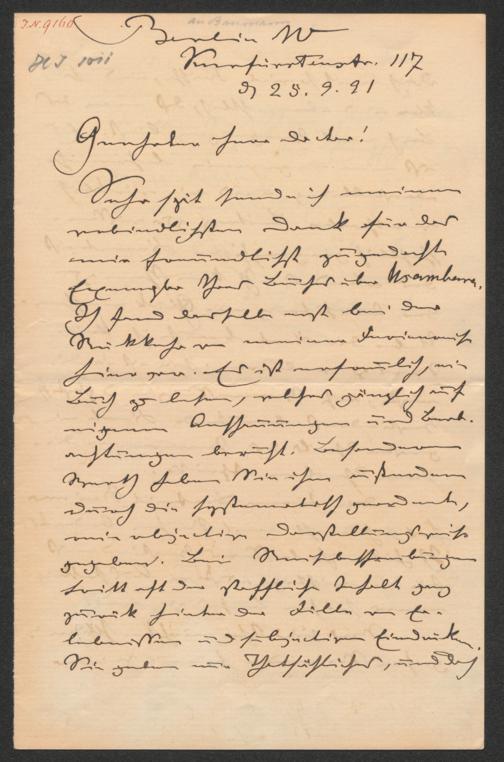 J.N. 9168
an Baumann
Berlin W
Kurfürstenstr. 117
d 23. 9. 91
Geehrter Herr Doctor!
Sehr spät sende ich meinen
verbindlichsten Dank für das
mir freundlichst zugedachte
Exemplar Ihres Buches über Usambara.
Ich fand dasselbe erst bei der
Rückkehr von meiner Ferienreise
hier vor. Es ist erfreulich, ein
Buch zu lesen, welches gänzlich auf
eigenen Anschauungen und Beob-
achtungen beruht. Besonderen
Werth haben Sie ihm außerdem
durch die systematisch geordnete,
rein objective Darstellungsweise
gegeben. Bei Reisebeschreibungen
tritt oft der stoffliche Inhalt ganz
zurück hinter der Fülle von Er-
lebnissen und subjectiven Eindrücken.
Sie geben nur Thatsächliches, und doch